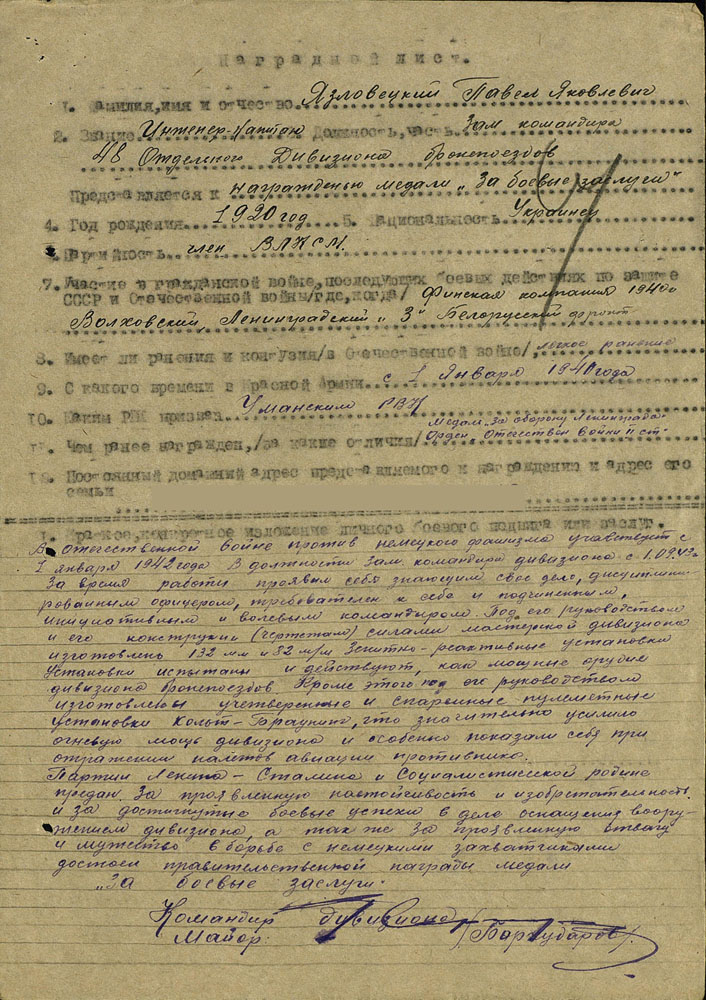 Наградной лист.
1. Фамилия, имя и отчество Язловецкий Павел Яковлевич
2. Звание Инженер-Капитан Должность, часть Зам командира
48 Отдельного Дивизиона бронепоездов
Представляется к награжденью медали „За боевые заслуги"
4. Год рождения 1920 год 5. Национальность Украинец
Партийность член ВЛКСМ.
7. Участие в гражданской войне, последующих боевых действиях по защите
СССР и Отечественной войны/где, когда/ Финская компания 1940г
Волховский, Ленинградский и 3й Белорусский фронт
8. Имеет ли ранения и контузия/в Отечественной войне/ легкое ранение
9. С какого времени в Красной Армии с 1 Января 1940 года
10. Каким РВК призван Уманским РВК
Медаль „За оборону Ленинграда"
11. Чем ранее награжден,/за какие отличия/ Орден Отечествен войны II ст.
12. Постоянный домашний адрес представляемого к награждению и адрес его
семьи
1. Краткое, конкретное изложение личного боевого подвига или заслуг.
В отечественной войне против немецкого фашизма участвует с
1 января 1942 года В должности Зам. командира дивизиона с 1.09.43г.
За время работы проявил себя знающим свое дело, дисциплини-
рованным офицером, требователен к себе и подчиненным,
инициативным и волевым командиром. Под его руководством
и его конструкции (чертежам) силами мастерской дивизиона
изготовлены 132 мм и 82 м/м Зенитно-реактивные установки
Установки испытаны и действуют, как мощные орудие
дивизиона бронепоездов Кроме этого под его руководством
изготовлены учетверенные и спаренные пулеметные
установки Кольт-Браунинг, что значительно усилило
огневую мощь дивизиона и особенно показали себя при
отражении налетов авиации противника.
Партии Ленина-Сталина и Социалистической родине
предан. За проявленную настойчивость и изобретательность
и за достигнутые боевые успехи в деле оснащения воору-
жением дивизиона, а так же за проявленную отвагу
и мужество в борьбе с немецкими захватчиками
достоен правительственной награды медали
„За боевые заслуги".
Командир дивизиона
Майор /Бархударов/